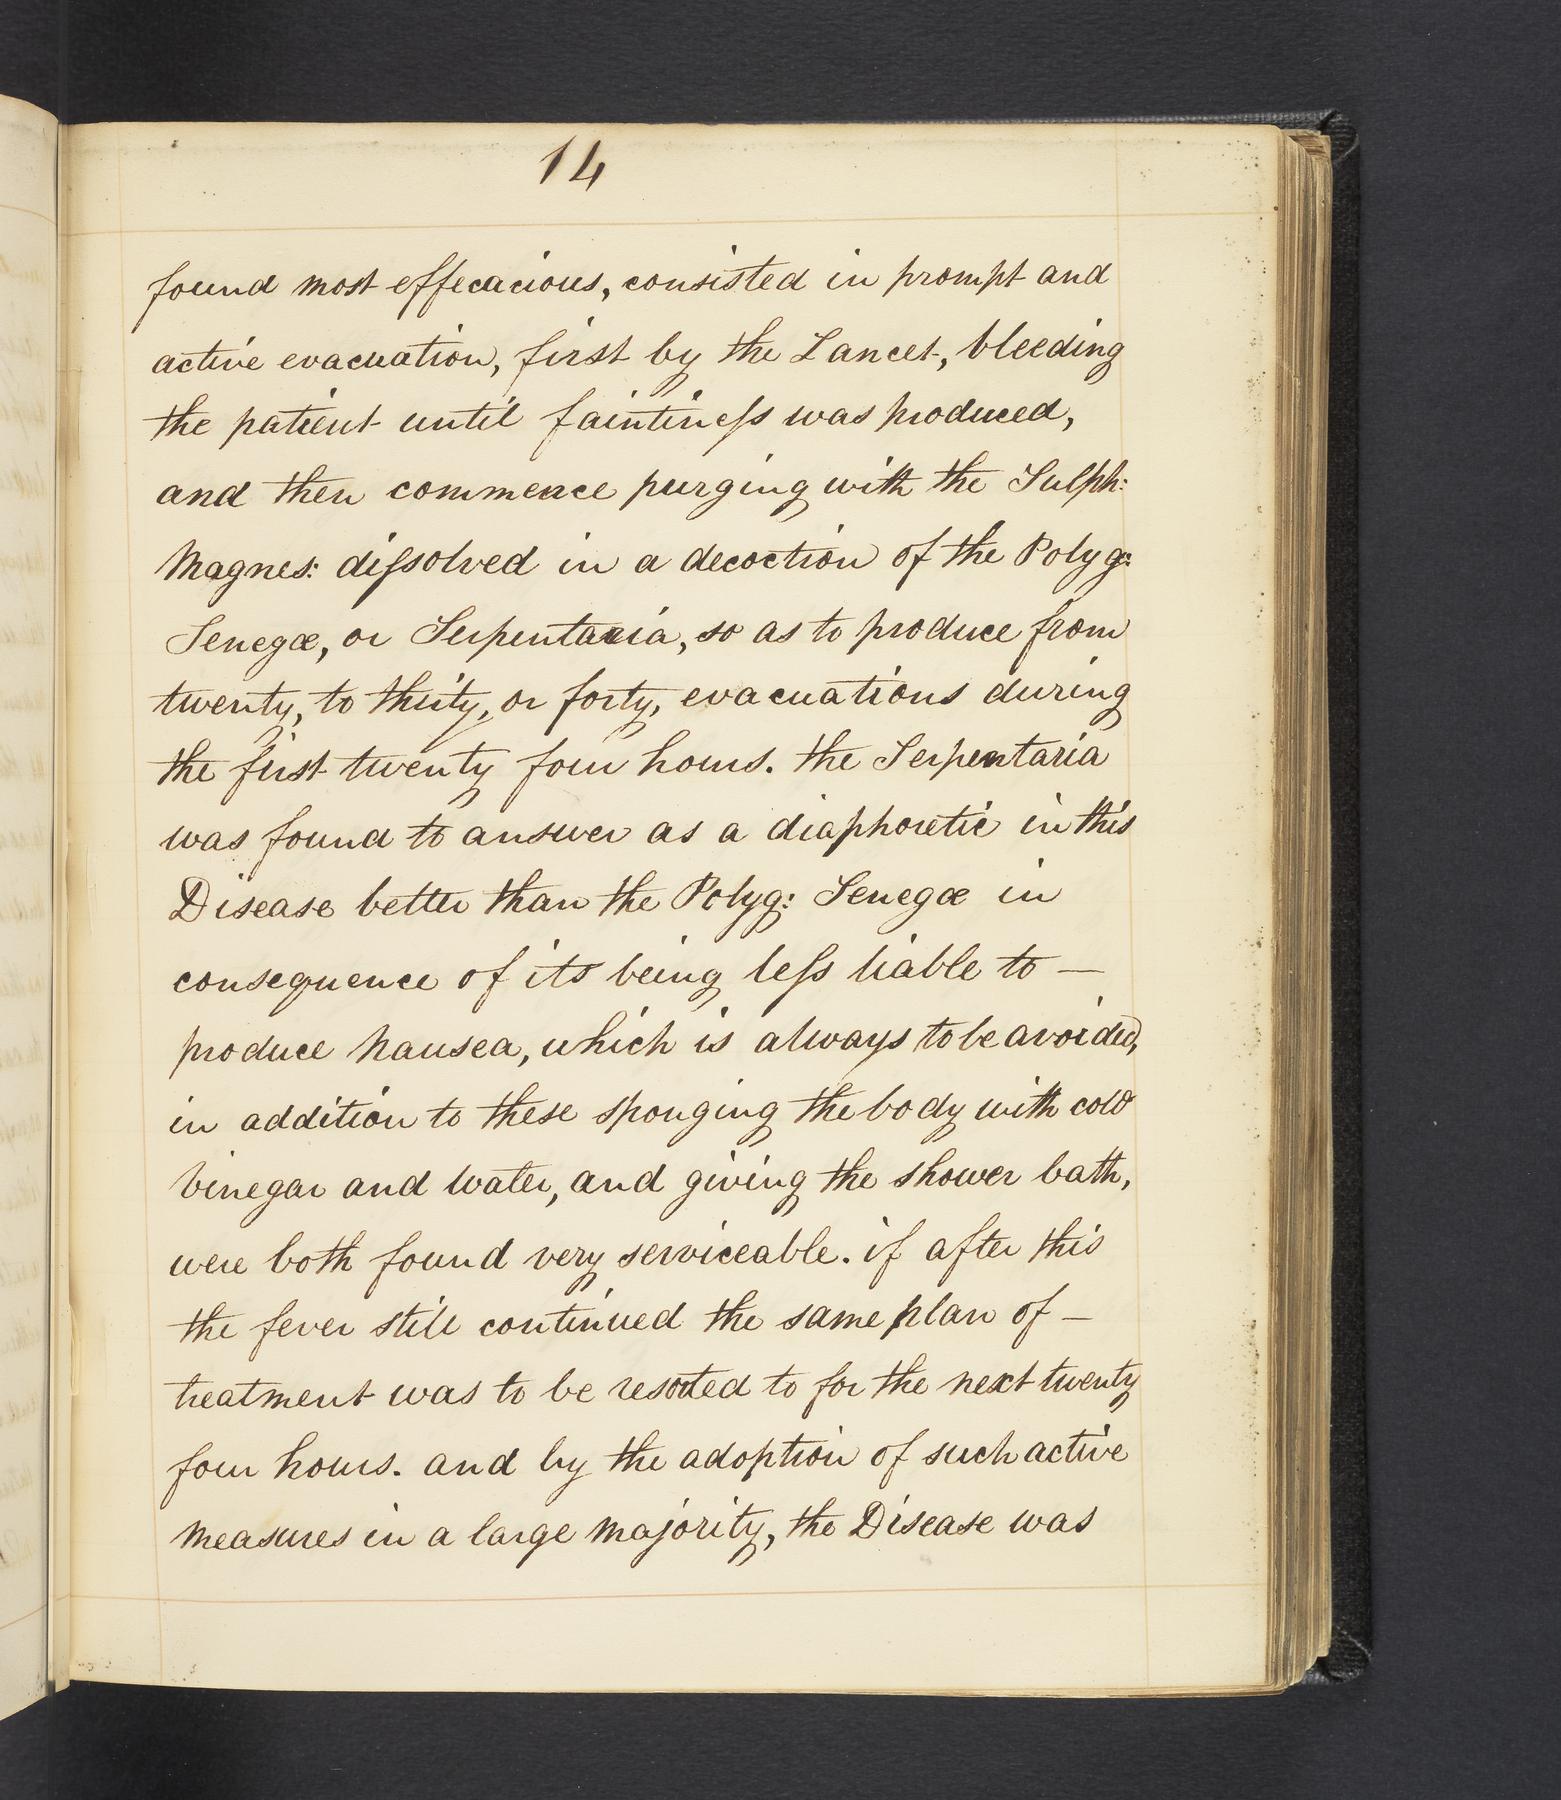 14
found most effecacious, consisted in prompt and
active evacuation, first by the Lancet, bleeding
the patient until faintineſs was produced,
and then commence purging with the Sulph:
Magnes: diſsolved in a decoction of the Polyg:
Senegæ, or Serpentaria, so as to produce from
twenty, to thirty, or forty, evacuations during
the first twenty four hours. the Serpentaria
was found to answer as a diaphoretic in this
Disease better than the Polyg: Senegæ in
consequence of its being leſs liable to —
produce nausea, which is always to be avoided,
in addition to these sponging the body with cold
vinegar and water, and giving the shower bath,
were both found very serviceable. if after this
the fever still continued the same plan of —
treatment was to be resorted to for the next twenty
four hours. and by the adoption of such active
measures in a large majority, the Disease was